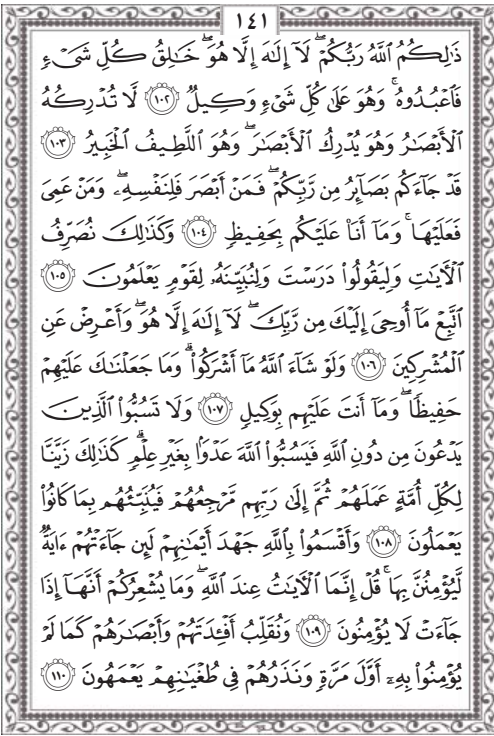 ١٤١
ذَٰلِكُمُ ٱللَّهُ رَبُّكُمْ ۖ لَآ إِلَٰهَ إِلَّا هُوَ ۖ خَٰلِقُ كُلِّ شَىْءٍ
فَٱعْبُدُوهُ ۚ وَهُوَ عَلَىٰ كُلِّ شَىْءٍ وَكِيلٌ ١٠٢ لَّا تُدْرِكُهُ
ٱلْأَبْصَٰرُ وَهُوَ يُدْرِكُ ٱلْأَبْصَٰرَ ۖ وَهُوَ ٱللَّطِيفُ ٱلْخَبِيرُ ١٠٣
قَدْ جَآءَكُم بَصَآئِرُ مِن رَّبِّكُمْ ۖ فَمَنْ أَبْصَرَ فَلِنَفْسِهِۦ ۖ وَمَنْ عَمِىَ
فَعَلَيْهَا ۚ وَمَآ أَنَا۠ عَلَيْكُم بِحَفِيظٍ ١٠٤ وَكَذَٰلِكَ نُصَرِّفُ
ٱلْءَايَٰتِ وَلِيَقُولُوا۟ دَرَسْتَ وَلِنُبَيِّنَهُۥ لِقَوْمٍ يَعْلَمُونَ ١٠٥
ٱتَّبِعْ مَآ أُوحِىَ إِلَيْكَ مِن رَّبِّكَ ۖ لَآ إِلَٰهَ إِلَّا هُوَ ۖ وَأَعْرِضْ عَنِ
ٱلْمُشْرِكِينَ ١٠٦ وَلَوْ شَآءَ ٱللَّهُ مَآ أَشْرَكُوا۟ ۗ وَمَا جَعَلْنَٰكَ عَلَيْهِمْ
حَفِيظًا ۖ وَمَآ أَنتَ عَلَيْهِم بِوَكِيلٍ ١٠٧ وَلَا تَسُبُّوا۟ ٱلَّذِينَ
يَدْعُونَ مِن دُونِ ٱللَّهِ فَيَسُبُّوا۟ ٱللَّهَ عَدْوًۢا بِغَيْرِ عِلْمٍ ۗ كَذَٰلِكَ زَيَّنَّا
لِكُلِّ أُمَّةٍ عَمَلَهُمْ ثُمَّ إِلَىٰ رَبِّهِم مَّرْجِعُهُمْ فَيُنَبِّئُهُم بِمَا كَانُوا۟
يَعْمَلُونَ ١٠٨ وَأَقْسَمُوا۟ بِٱللَّهِ جَهْدَ أَيْمَٰنِهِمْ لَئِن جَآءَتْهُمْ ءَايَةٌ
لَّيُؤْمِنُنَّ بِهَا ۚ قُلْ إِنَّمَا ٱلْءَايَٰتُ عِندَ ٱللَّهِ ۖ وَمَا يُشْعِرُكُمْ أَنَّهَآ إِذَا
جَآءَتْ لَا يُؤْمِنُونَ ١٠٩ وَنُقَلِّبُ أَفْـِٔدَتَهُمْ وَأَبْصَٰرَهُمْ كَمَا لَمْ
يُؤْمِنُوا۟ بِهِۦٓ أَوَّلَ مَرَّةٍ وَنَذَرُهُمْ فِى طُغْيَٰنِهِمْ يَعْمَهُونَ ١١٠